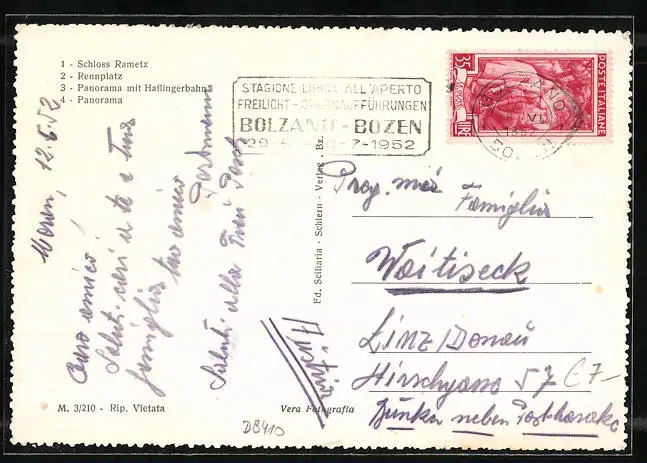 1 - Schloss Rametz
2 - Rennplatz
3 - Panorama mit Haflingerbahn
4 - Panorama
STAGIONE LIRICA ALL'APERTO
FREILICHT - OPERNAUFFÜHRUNGEN
BOLZANO - BOZEN
29-6 -7-1952
35
LIRE
POSTE ITALIANE
Meran, 12.6.52
Caro amico!
Saluti cari a te e tua
famiglia tuo amico
Saluti alla
Fd. Sciliaria - Schlern - Verlag - Bz.
Famiglia
Woitiseck
Linz/Donau
Hirschgasse 57
neben
M. 3/210 - Rip. Vietata
Vera Fotografia
DB410